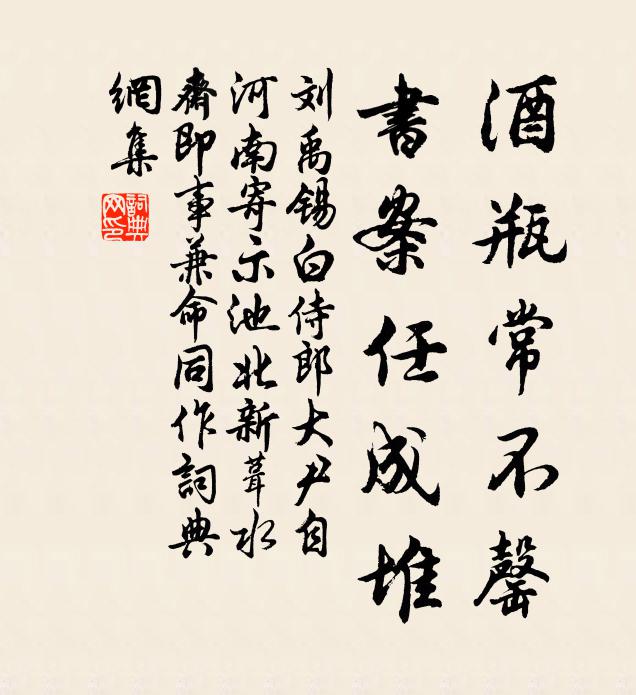 酒瓶常不罄
書案任成堆
刘禹锡白侍郎大尹自
河南寄示池北新葺水
齋即事兼命同作詞典
網集
詞典
网印